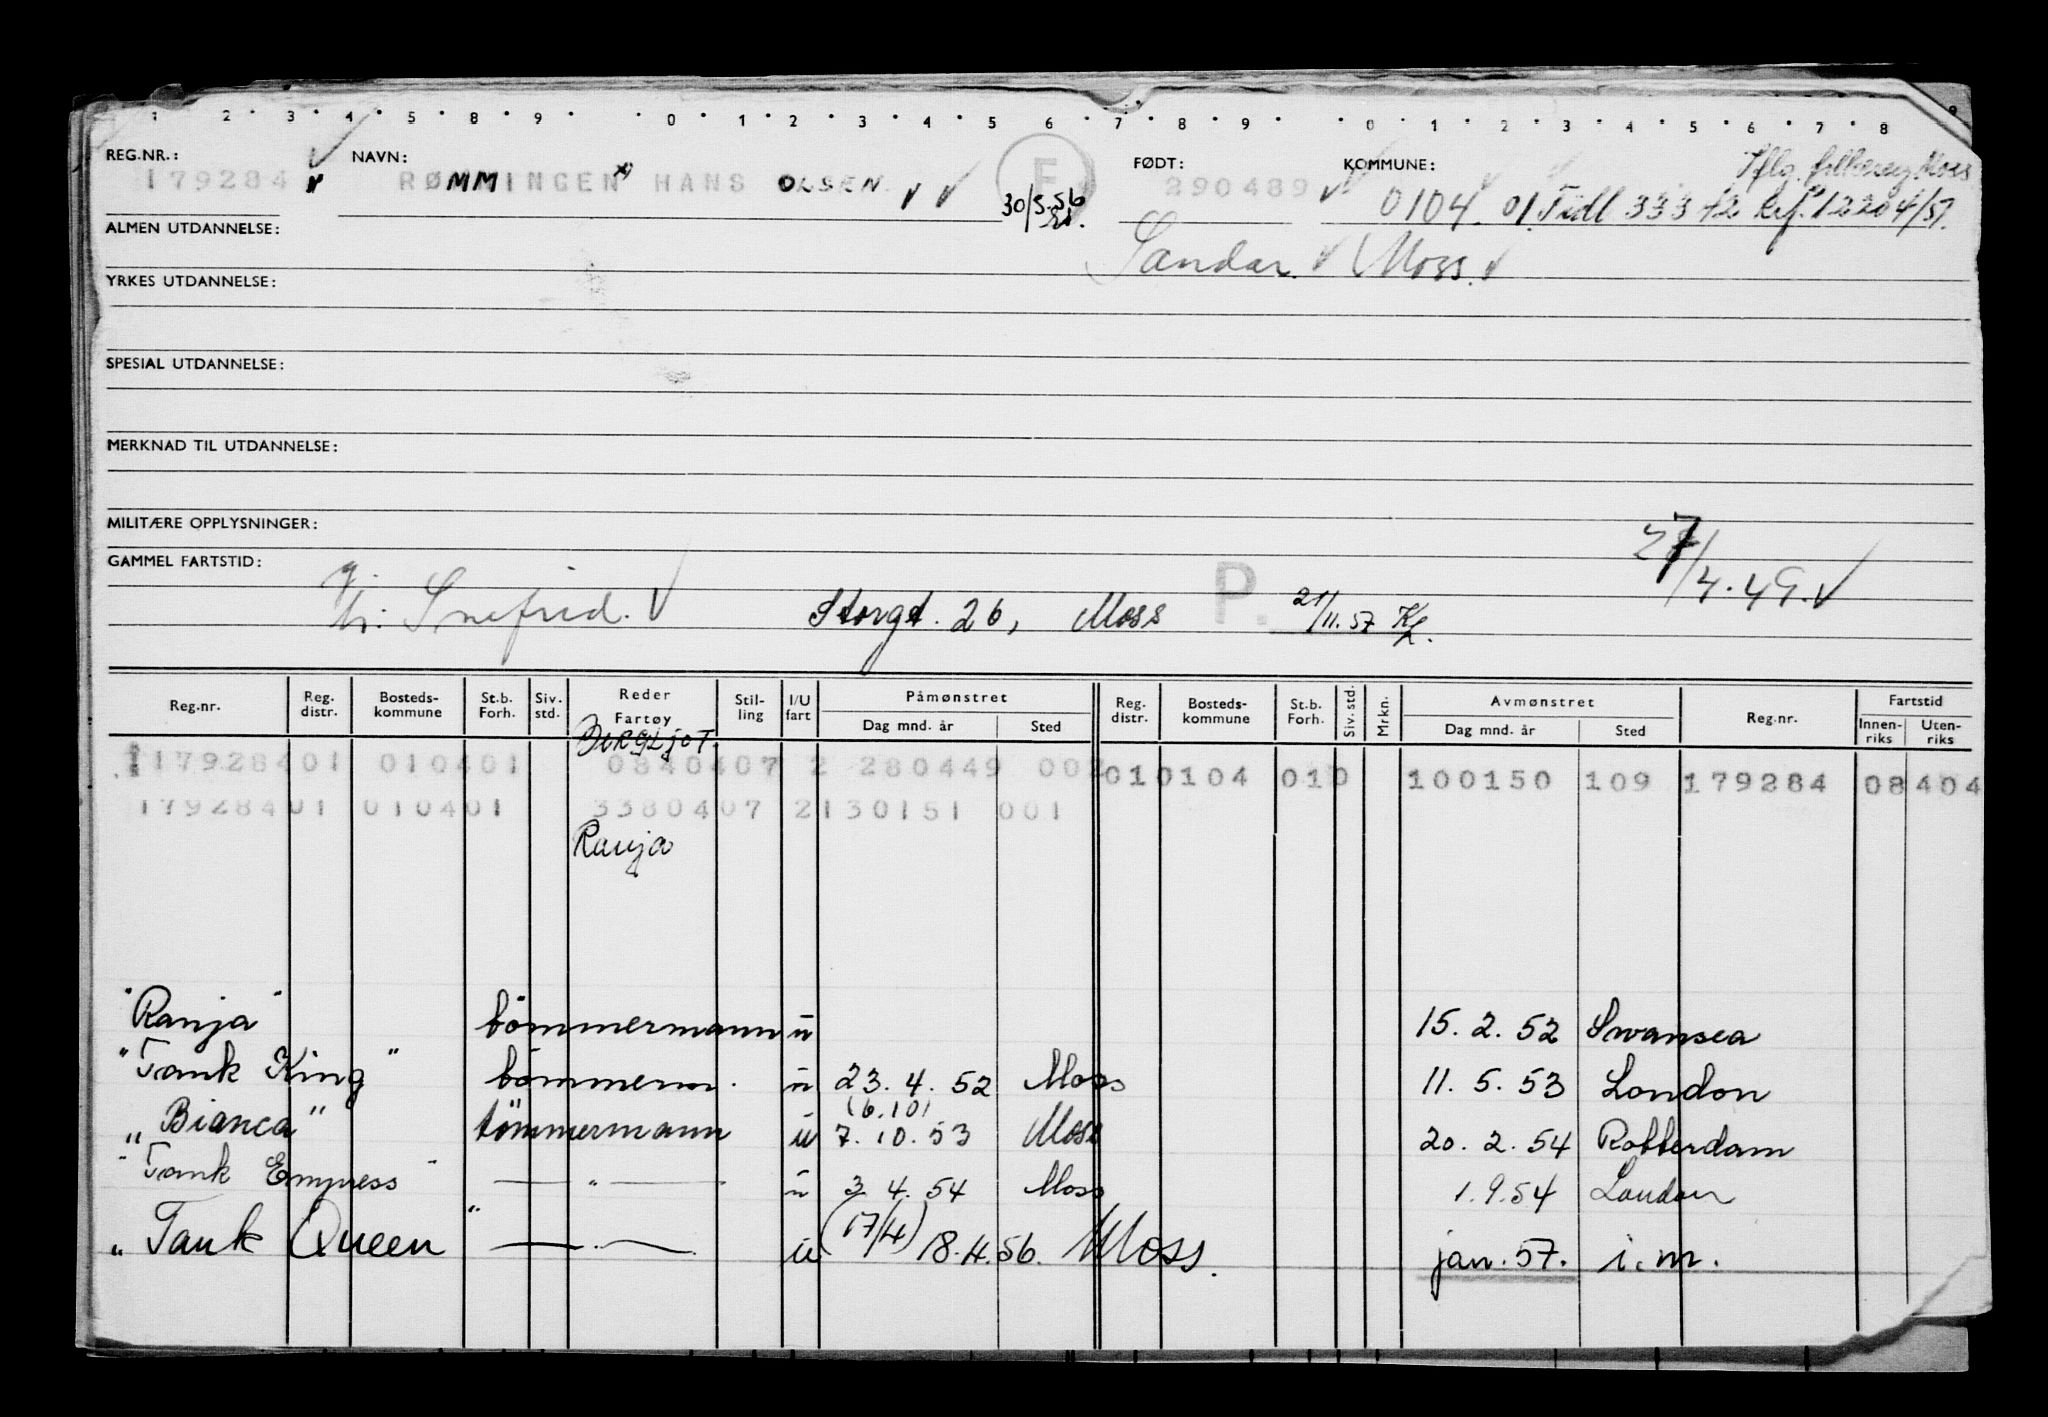 1 2 3 4 5 8 9 0 1 2 3 4 5 6 7 8 9 0 1 2 3 4 5 6 7 8 9
REG.NR.: NAVN: FØDT: KOMMUNE: Iflg. folkereg. Moss
179284 RØMMINGEN x) HANS OLSEN F 290489 0104.01. Tidl 333 42 krf. 12204/57.
30/5.56
ALMEN UTDANNELSE: Sandar. Moss.
YRKES UTDANNELSE:
SPESIAL UTDANNELSE:
MERKNAD TIL UTDANNELSE:
MILITÆRE OPPLYSNINGER: 27/4.49.
GAMMEL FARTSTID:
g.
h: Snefrid. Storgt. 26, Moss P. 21/11.57
Reg.nr. Reg. distr. Bosteds-kommune St.b. Forh. Siv. std. Reder Fartøy Stil-ling I/U fart Påmønstret Dag mnd. år Sted Reg. distr. Bosteds-kommune St.b. Forh. Siv. std. Mrkn. Avmønstret Dag mnd. år Sted Reg.nr. Fartstid Innen-riks Uten-riks
BERGLJOT.
17928401 010401 0840407 2 280449 002 010104 010 100150 109 179284 08404
17928401 010401 3380407 2130151 001
Ranja
"Ranja" tömmermann u 15. 2. 52 Swansea
"Tank King" tömmerm. u 23. 4. 52 Moss 11. 5. 53 London
(6.10)
"Bianca" tömmermann u 7. 10. 53 Moss 20. 2. 54 Rotterdam
"Tank Empress" — " — u 3. 4. 54 Moss 1. 9. 54 London
"Tank Queen" — " — u (17/4) 18.4.56. Moss. jan. 57. i.m.